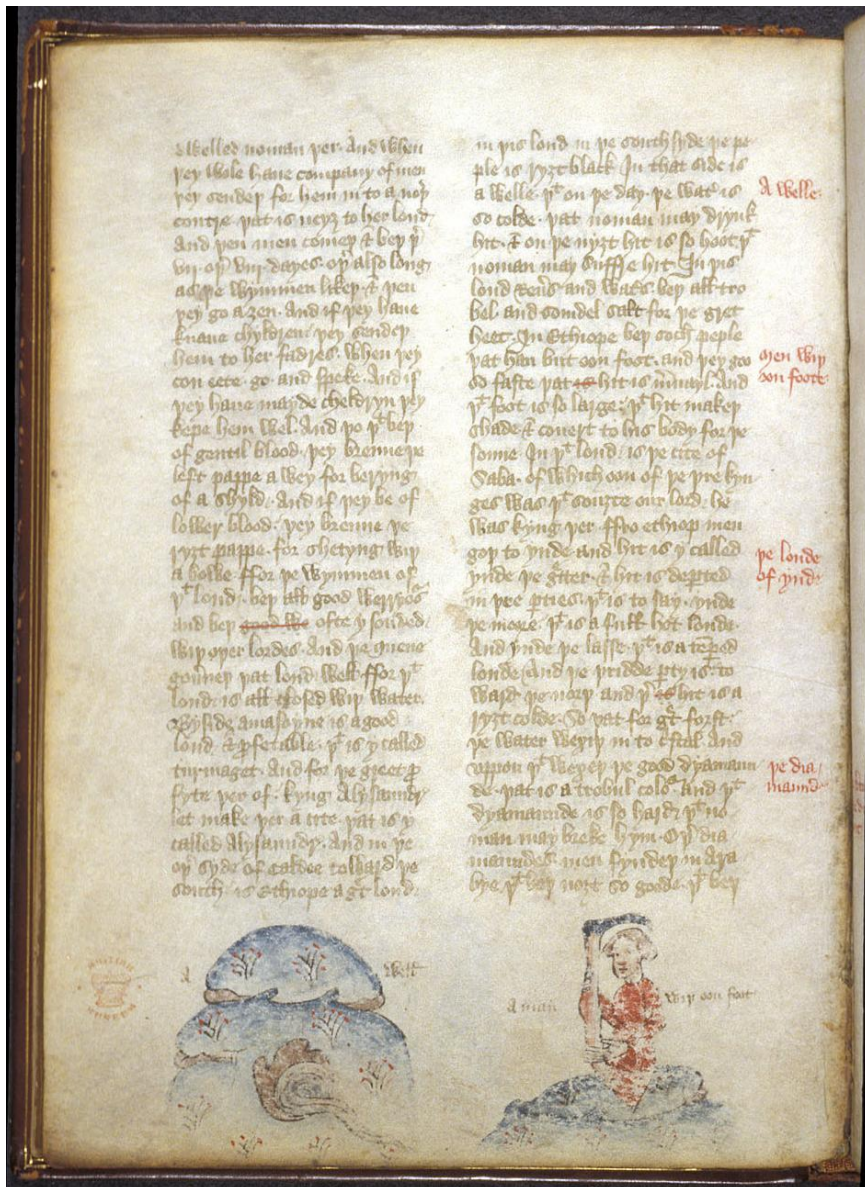 dwelled noman þer. And when
þey wole haue company of men
þey sendeþ for hem in to a noþ
contre. þat is neyȝ to her lond.
And þen men comeþ & beþ þ
vii. oþ viii. dayes. oþ also long
as þe wymmen likeþ. & þen
þey go a ȝen. And if þey haue
knaue chyldren. þey sendeþ
hem to her fadres. when þey
con eete. go and speke. And if
þey haue mayde cheldryn þey
kepe hem wel. And þo þt beþ
of gentil blood. þey brenne þe
left pappe a wey for beryng
of a shyld. And if þey be of
lower blood. þey brenne þe
ryȝt pappe. for shetyng wiþ
a bowe. ffor þe wymmen of
þt lond. beþ all good werryors
and beþ good we ofte y souded
wiþ oþer lordes. And þe quene
gouneþ þat lond well. ffor þt
lond. is all closed wiþ water.
Byside amasoyne is a good
lond & pfetable. þt is y called
turmaget. And for þe greet p
fyte þer of. kyng Alysaundr
let make þer a cite. þat is y
called Alysaundr. And in þe
oþ syde of caldee toward þe
south. is Ethiope a gt lond.
in þis lond in þe south syde þe pe
ple is ryȝt black. In that side is
a welle. þt on þe day. þe wat is
so colde. þat noman may drynk
hit. & on þe nyȝt hit is so hoot. þt
noman may suffre hit. In þis
lond Reus and wats beþ all tro
bel. and somdel salt for þe gret
heet. In Ethiope beþ such peple
þat han but oon foot. and þey goo
so faste þat is hit is muayl. And
þt foot is so large. þt hit makeþ
shade & couert to his body for þe
sonne. In þt lond. is þe cite of
Saba. of which oon of þe þre kyn
ges was þt souȝte our lord. he
was kyng þer. ffro ethiop men
goþ to ynde and hit is y called
ynde þe gtter. & hit is depted
in þre pties. þt is to say. ynde
þe more. þt is a full hot londe.
And ynde þe lasse. þt is a temped
londe. And þe þridde pty is to
ward þe norþ and þ is hit is a
ryȝt colde. So þat for gt forst.
þe water wexiþ in to cstal. And
vppon þt wexeþ þe good dyamaun
de. þat is a trobul colo And þt
dyamaunde is so hard. þt no
man may breke hym. Oþ dia
maundes men fyndeþ in Ara
bye. þt beþ noȝt so goode. þt beþ
A welle.
men wiþ
oon foote
þe londe
of ynde
þe dia
maund
A well
A man wiþ oon foot
BRITISH MUSEUM